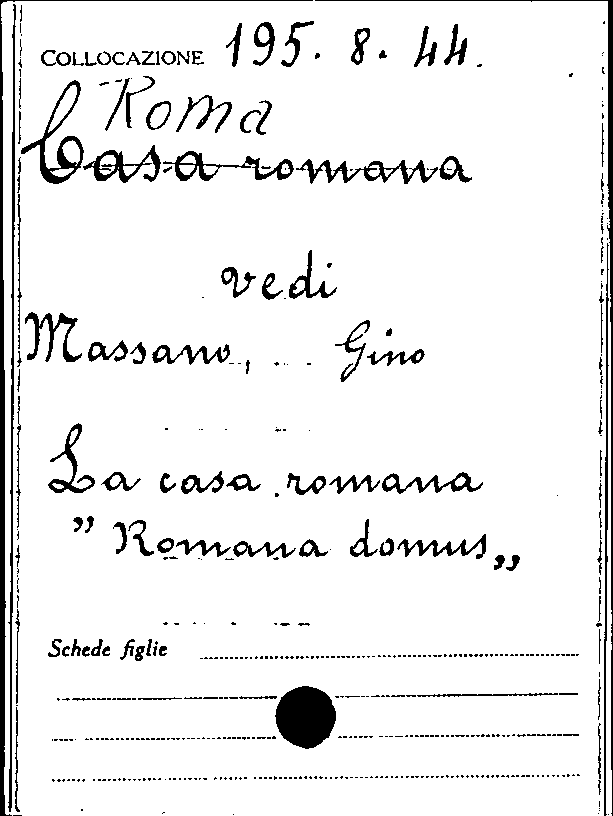 COLLOCAZIONE 195. 8. 44.
Roma
Casa romana
vedi
Massano, Gino
La casa romana
" Romana domus „
Schede figlie